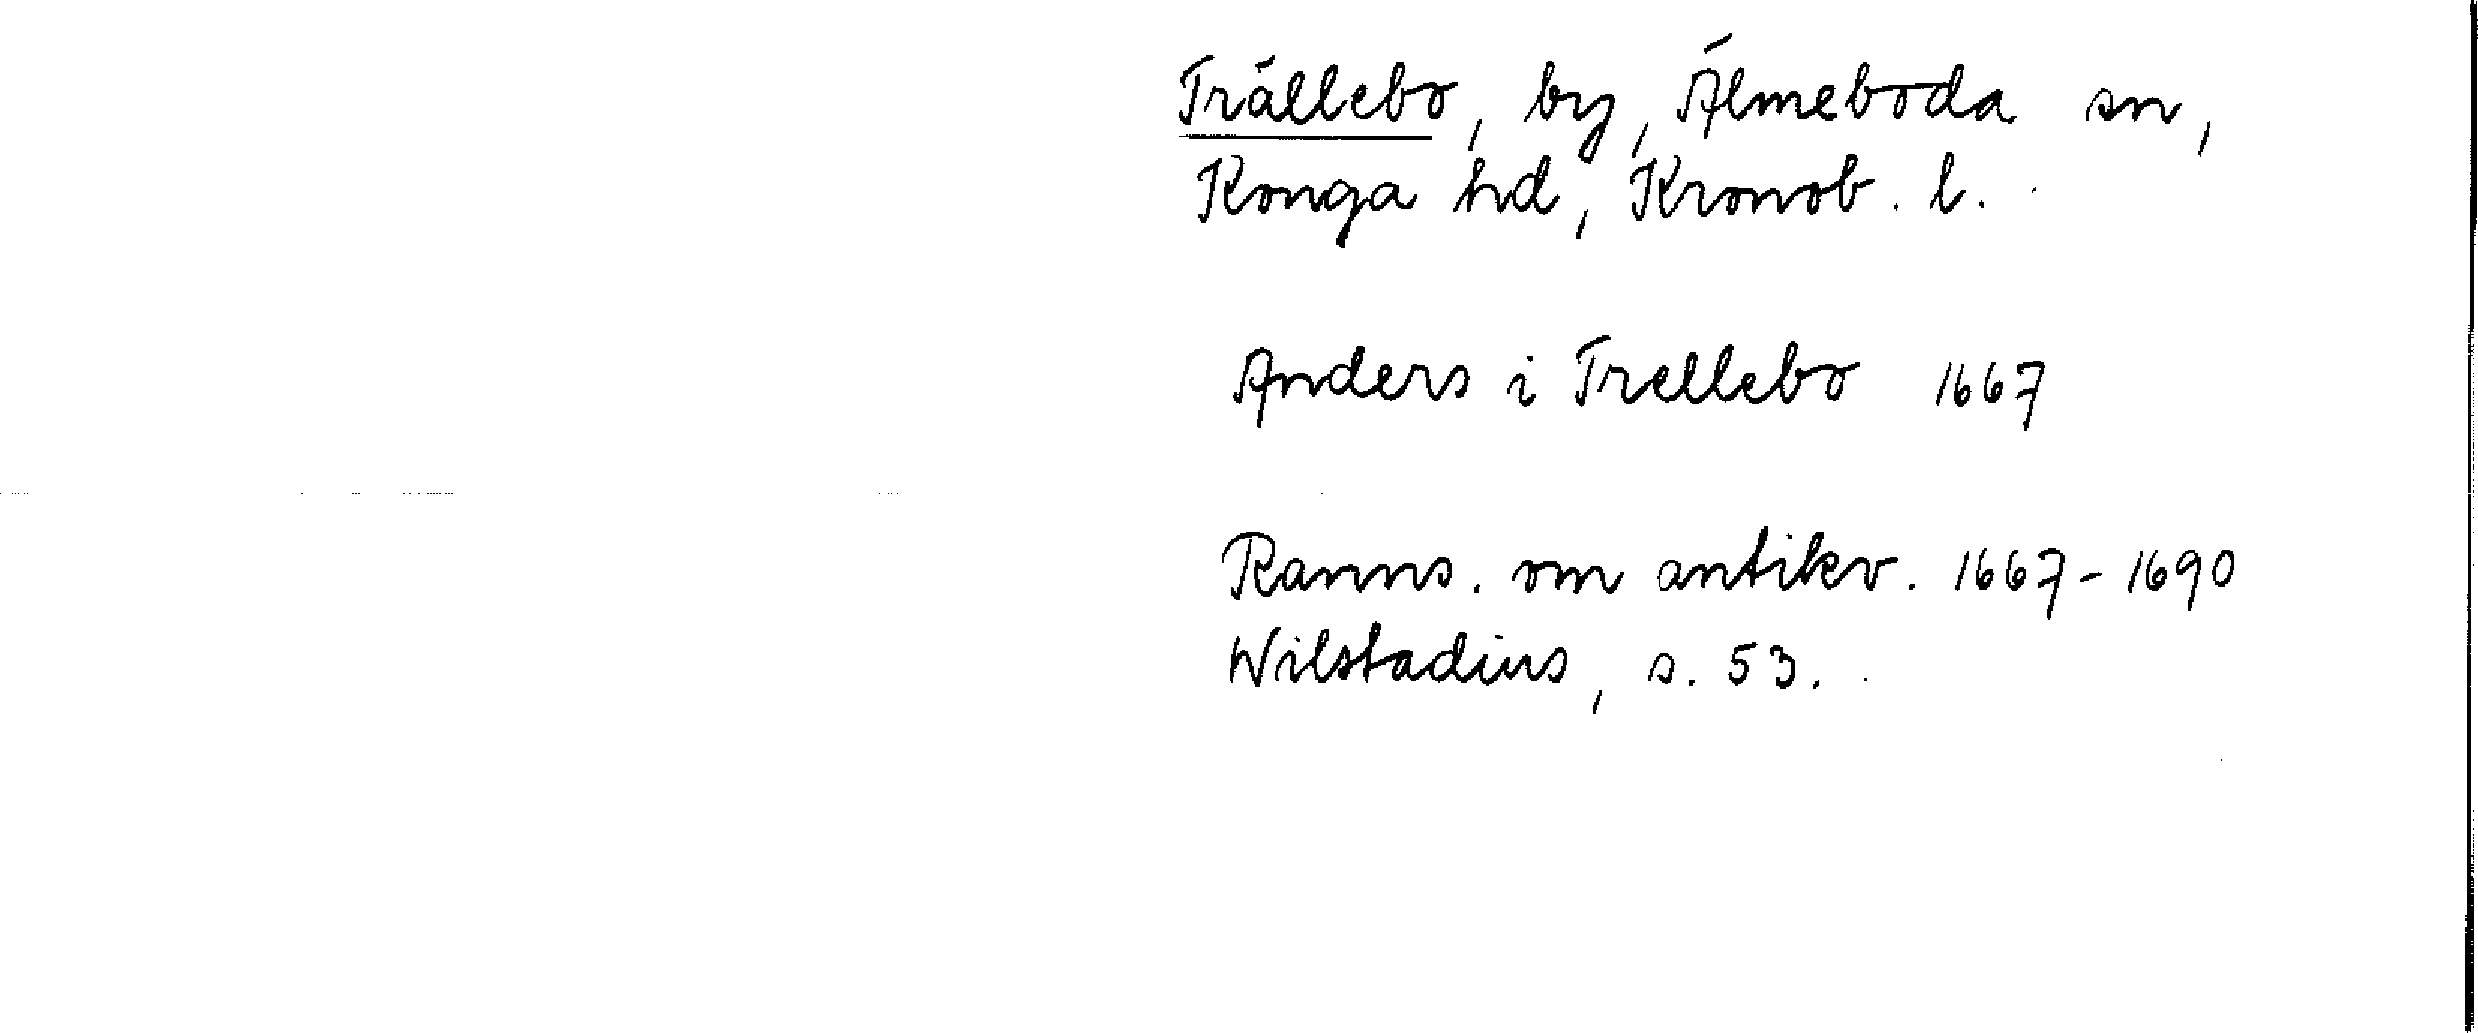 Trällebo, by, Älmeboda sn,
Konga hd, Kronob. l.
Anders i Trellebo 1667
Ranns. om antikv. 1667-1690
Wilstadius, s. 53.